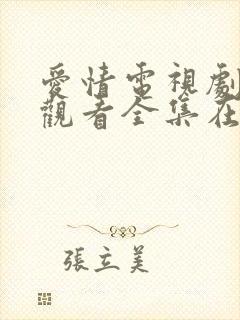 愛情電視劇
觀看全集在
張立美